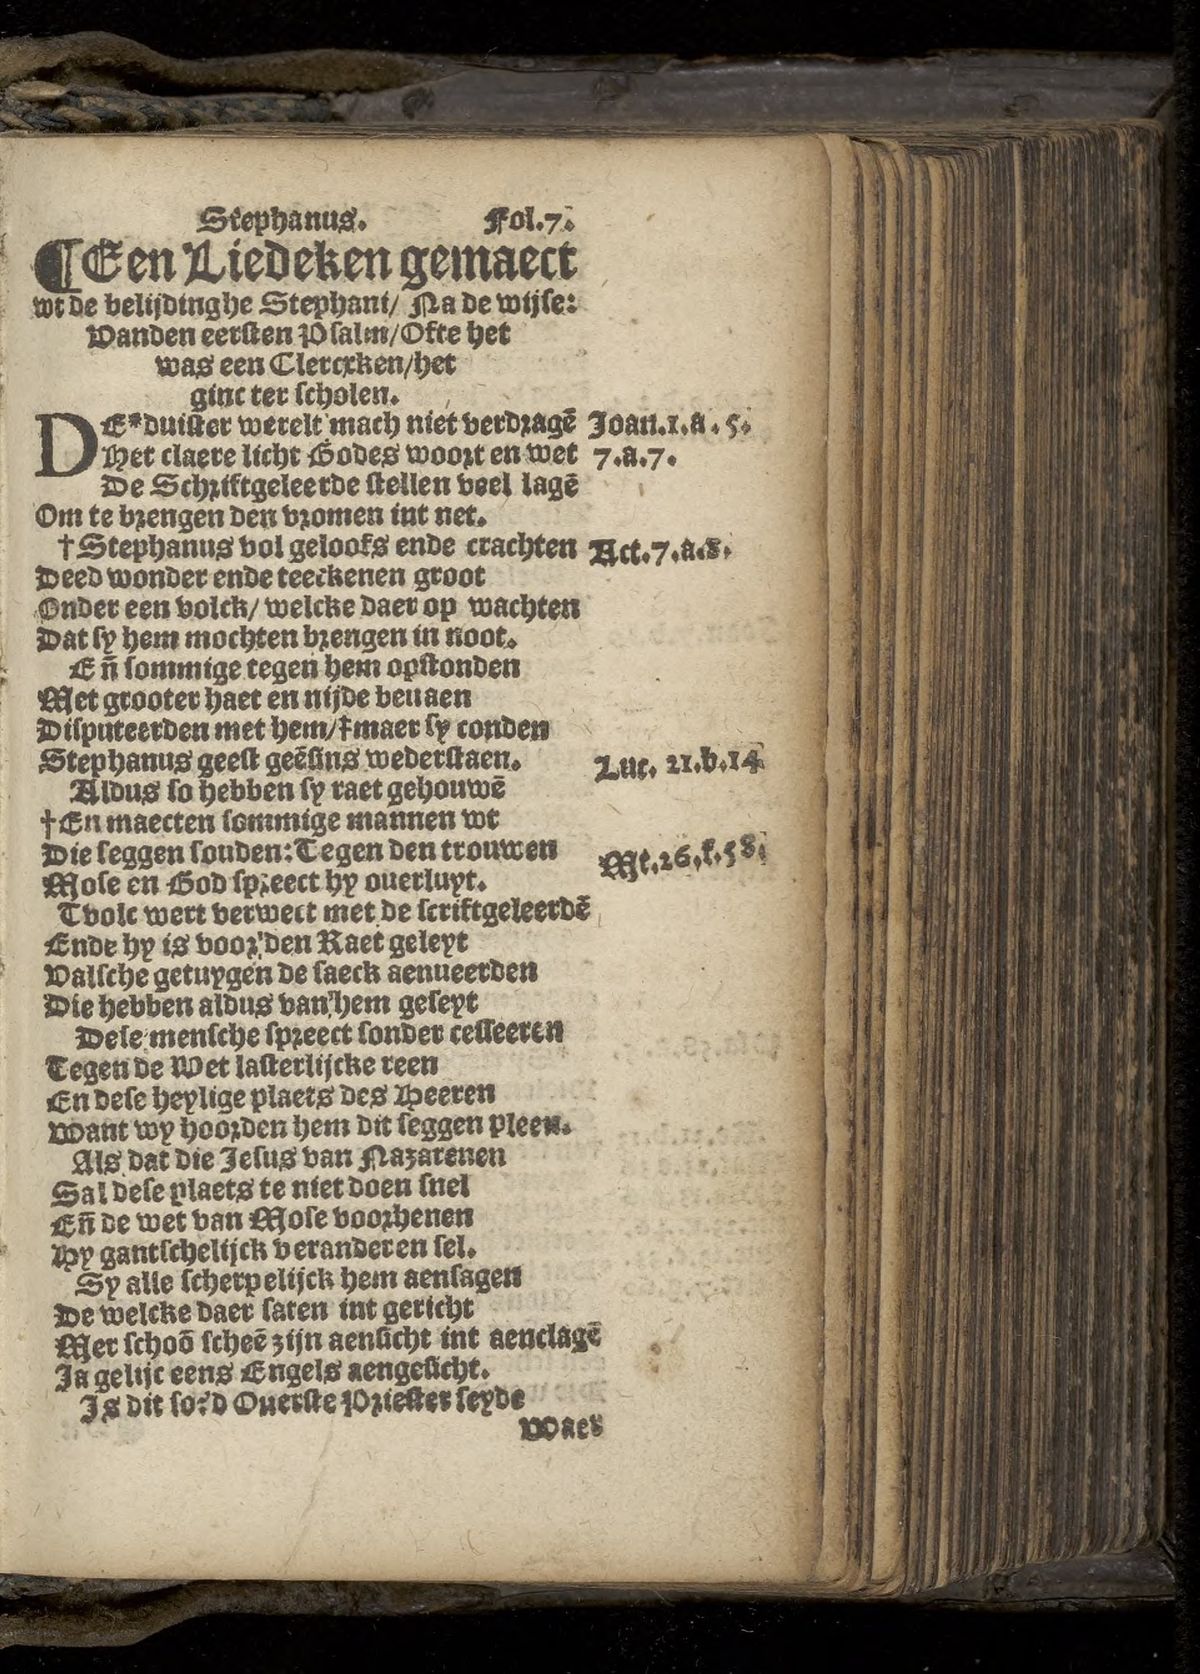 Stephanus. Fol.7.
¶Een Liedeken gemaect
wt de belijdinghe Stephani/ Na de wijse:
Vanden eersten Psalm/Ofte het
was een Clercxken/het
ginc ter scholen.
DE duister werelt mach niet verdragē Joan.1.a.5.
Het claere licht Godes woort en wet 7.a.7.
De Schriftgeleerde stellen veel lagē
Om te brengen den vromen int net.
†Stephanus vol geloofs ende crachten Act.7.a.8.
Deed wonder ende teeckenen groot
Onder een volck/ welcke daer op wachten
Dat sy hem mochten brengen in noot.
En̄ sommige tegen hem opstonden
Met grooter haet en nijde beuaen
Disputeerden met hem/†maer sy conden
Stephanus geest geēsins wederstaen. Luc. 21.b.14
Aldus so hebben sy raet gehouwē
†En maecten sommige mannen wt
Die seggen souden: Tegen den trouwen Mt.26.f.58.
Mose en God spreect hy ouerluyt.
Tvolc wert verwect met de scriftgeleerdē
Ende hy is voor den Raet geleyt
Valsche getuygen de saeck aenueerden
Die hebben aldus van hem geseyt
Dese mensche spreect sonder cesseeren
Tegen de Wet lasterlijcke reen
En dese heylige plaets des Heeren
Want wy hoorden hem dit seggen pleen.
Als dat die Jesus van Nazarenen
Sal dese plaets te niet doen snel
En̄ de wet van Mose voorhenen
Hy gantschelijck veranderen sel.
Sy alle scherpelijck hem aensagen
De welcke daer saten int gericht
Mer schoō scheē zijn aensicht int aenclagē
Ja gelijc eens Engels aengesicht.
Is dit so?d Ouerste Priester seyde
Waer